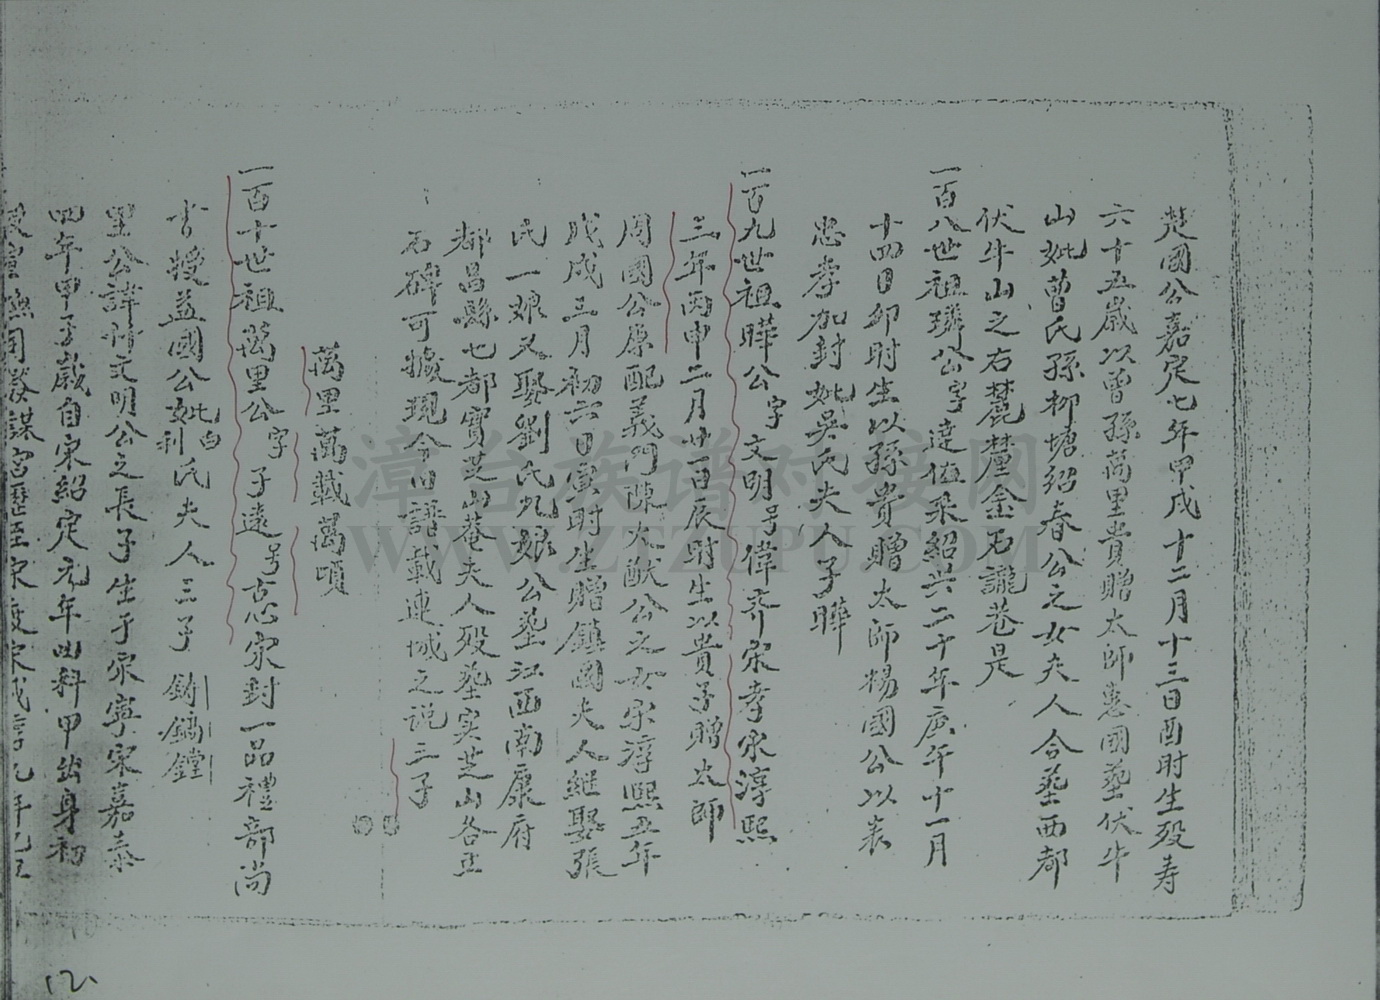 楚國公嘉定七年甲戌十二月十三日酉时生殁寿
六十五歲以曾孫萬里贵贈太师惠國塟伏牛
山妣曹氏孫柳塘绍春公之女夫人合塟西都
伏牛山之右麓埜金石巷是
一百八世祖璘公字達伍宋紹兴二十年庚午十一月
十四日卯时生以孫贵贈太师楊國公以表
忠孝加封妣吴氏夫人子曄
一百九世祖曄公字文明号偉齐宋孝宗淳熙
三年丙申二月廿一日辰时生以贵子贈太师
周國公原配義门陳大猷公之女宋淳熙五年
戊戌三月初六日寅时生贈鎮國夫人継娶張
氏一娘又娶劉氏九娘公塟江西南康府
都昌縣七都寳芝山菴夫人殁塟实芝山各立
石碑可據現今旧譜載連城之说三子
萬里萬載萬頃
一百十世祖萬里公字子遠号古心宋封一品禮部尚
書授益國公妣白利氏夫人三子鑄鎬鏜
里公諱脩文明公之長子生于宋寧宗嘉泰
四年甲子歲自宋紹定元年四科甲出身初
12
漳台族谱对接网
WWW.ZTZUPU.COM